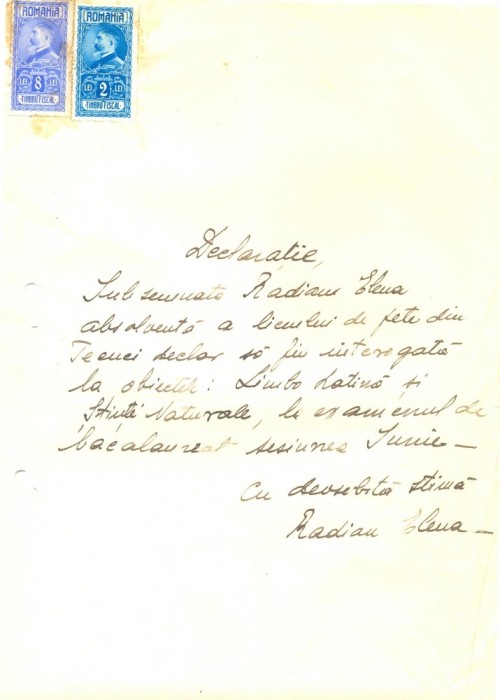 ROMANIA
LEI 8 LEI
TIMBRU FISCAL
ROMANIA
LEI 2 LEI
TIMBRU FISCAL
Declarație,
Subsemnata Radian Elena
absolventă a liceului de fete din
Tecuci declar să fiu interogată
la obiectele: Limba Latină și
Științi Naturale, la examenul de
bacalaureat sesiunea Iunie —
Cu deosebită stimă
Radian Elena —